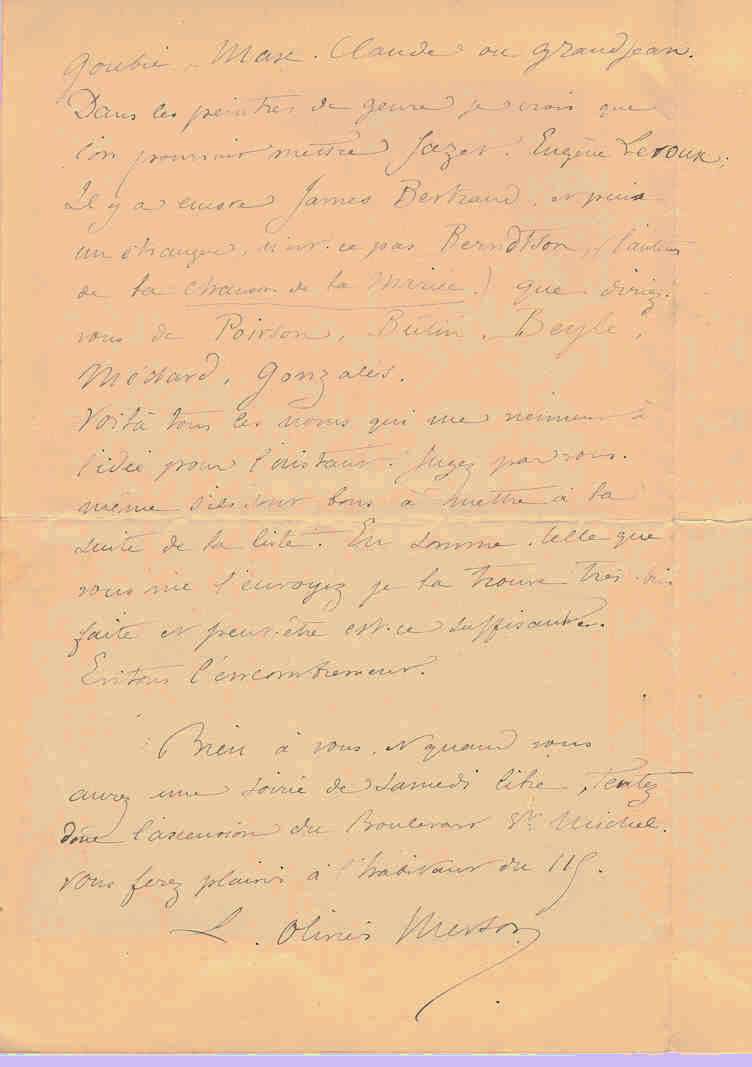 Goubie, Max. Claude ou Grandjean.
Dans les peintres de genre je crois que
l'on pourrait mettre Jazet. Eugène Leroux;
Il y a encore James Bertrand, et puis
un étranger, n'est-ce pas Berndtson, (l'auteur
de la chanson de la Mariée.) que diriez-
vous de Poirson, Butin, Beyle,
Médard, Gonzalès.
Voilà tous les noms qui me viennent à
l'idée pour l'instant. Jugez par vous-
même s'ils sont bons à mettre à la
suite de la liste. En somme, telle que
vous me l'envoyez je la trouve très bien
faite et peut-être est-ce suffisant.
Evitons l'encombrement.
Bien à vous, et quand vous
aurez une soirée de samedi libre, tentez
donc l'ascension du Boulevard St Michel.
vous ferez plaisir à l'habitant du 115.
L. Olivier Merson